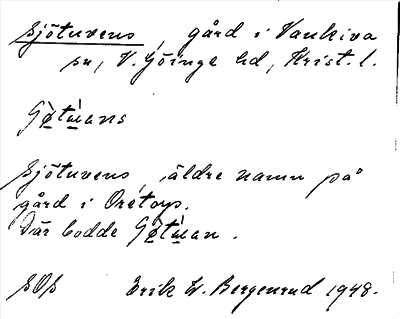 Sjötuvens, gård i Vankiva
sn, V. Göinge hd, Krist. l.
Gøtmans
Sjötuvens, äldre namn på
gård i Oretorp.
Där bodde Gøtman.
SOS Erik W. Bergenrud 1948.